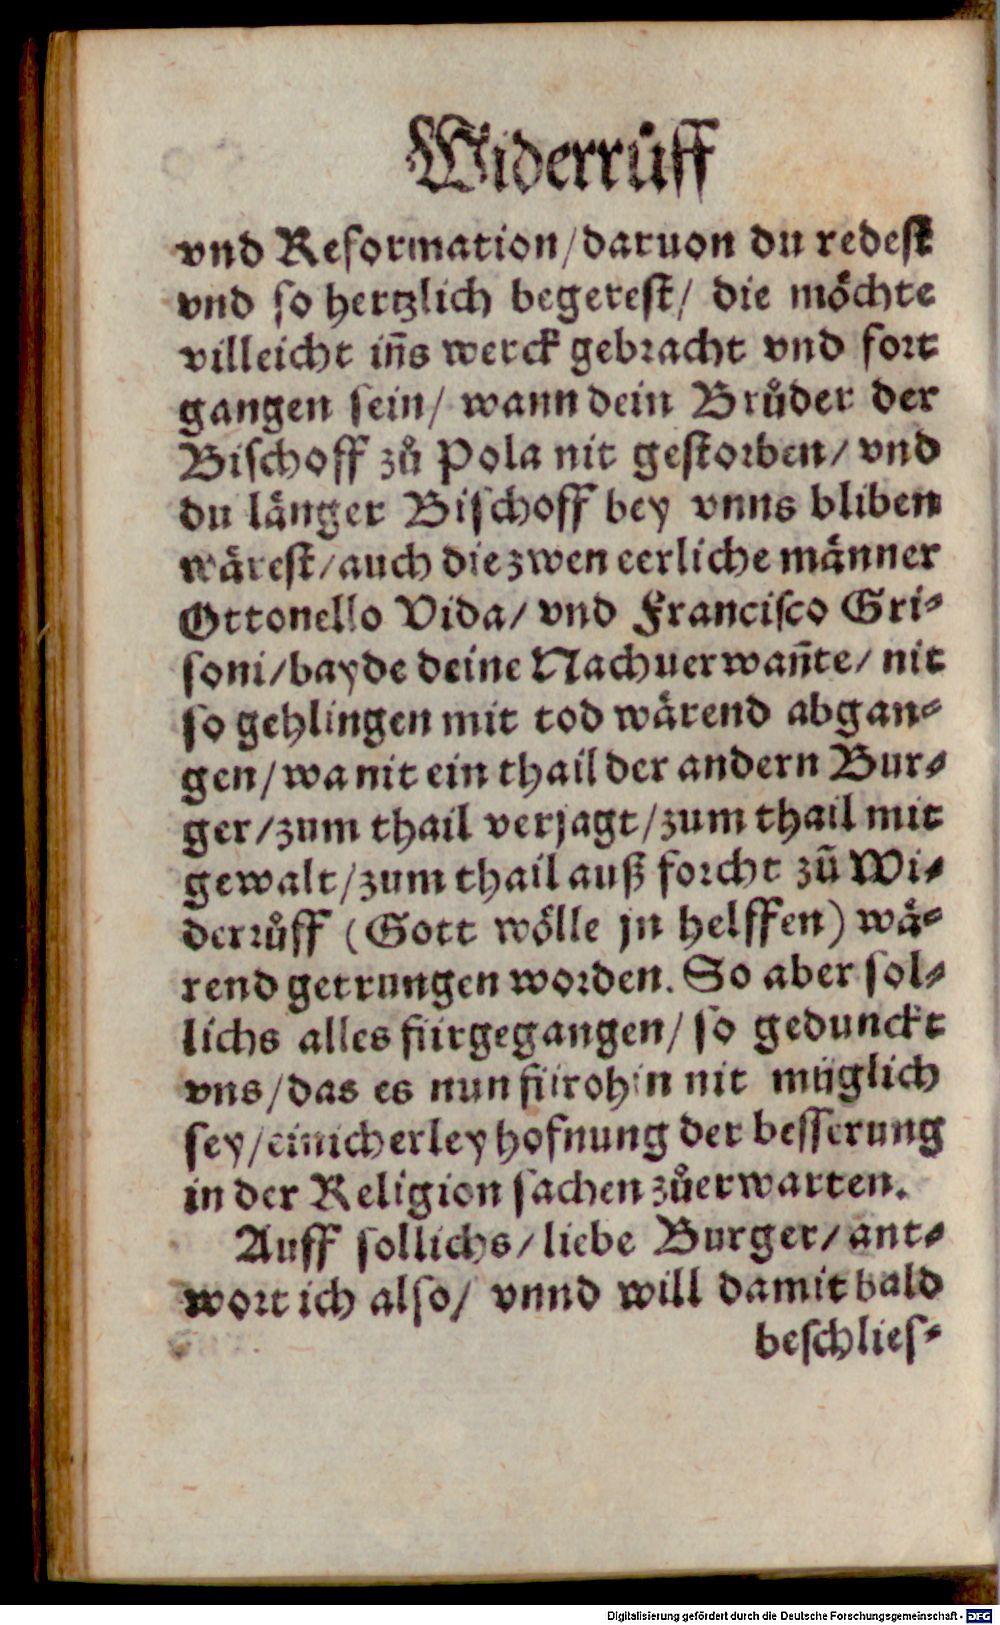 Widerruͦff
vnd Reformation/daruon du redest
vnd so hertzlich begerest/ die moͤchte
villeicht iñs werck gebracht vnd fort
gangen sein/ wann dein Bruͦder der
Bischoff zuͦ Pola nit gestorben/ vnd
du laͤnger Bischoff bey vnns bliben
waͤrest/auch die zwen eerliche maͤnner
Ottonello Vida/ vnd Francisco Gri⸗
soni/bayde deine Nachuerwañte/ nit
so gehlingen mit tod waͤrend abgan⸗
gen/wa nit ein thail der andern Bur⸗
ger/zum thail verjagt/zum thail mit
gewalt/zum thail auß forcht zuͦ Wi⸗
derruͦff (Gott woͤlle jn helffen) waͤ⸗
rend getrungen worden. So aber sol⸗
lichs alles fürgegangen/ so gedunckt
vns/das es nun fürohin nit müglich
sey/einicherley hofnung der besserung
in der Religion sachen zuͦerwarten.
Auff sollichs/liebe Burger/ant⸗
wort ich also/ vnnd will damit bald
beschlies⸗
Digitalisierung gefördert durch die Deutsche Forschungsgemeinschaft - DFG